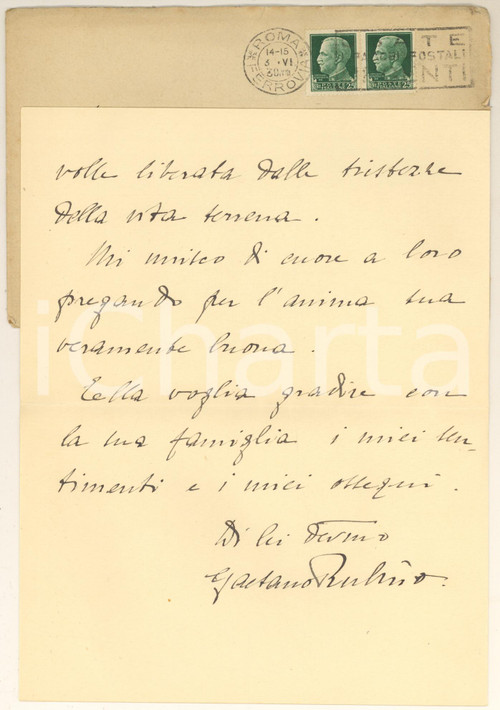 ROMA
FERROVIA
14-15
3 · VI
POSTALI
volle liberata dalle tristezze
della vita terrena.
Mi unisco di cuore a loro
pregando per l'anima sua
veramente buona.
Ella voglia gradire con
la sua famiglia i miei sen-
timenti e i miei ossequi.
Di lei devmo
Gaetano Rubino.
iCharta